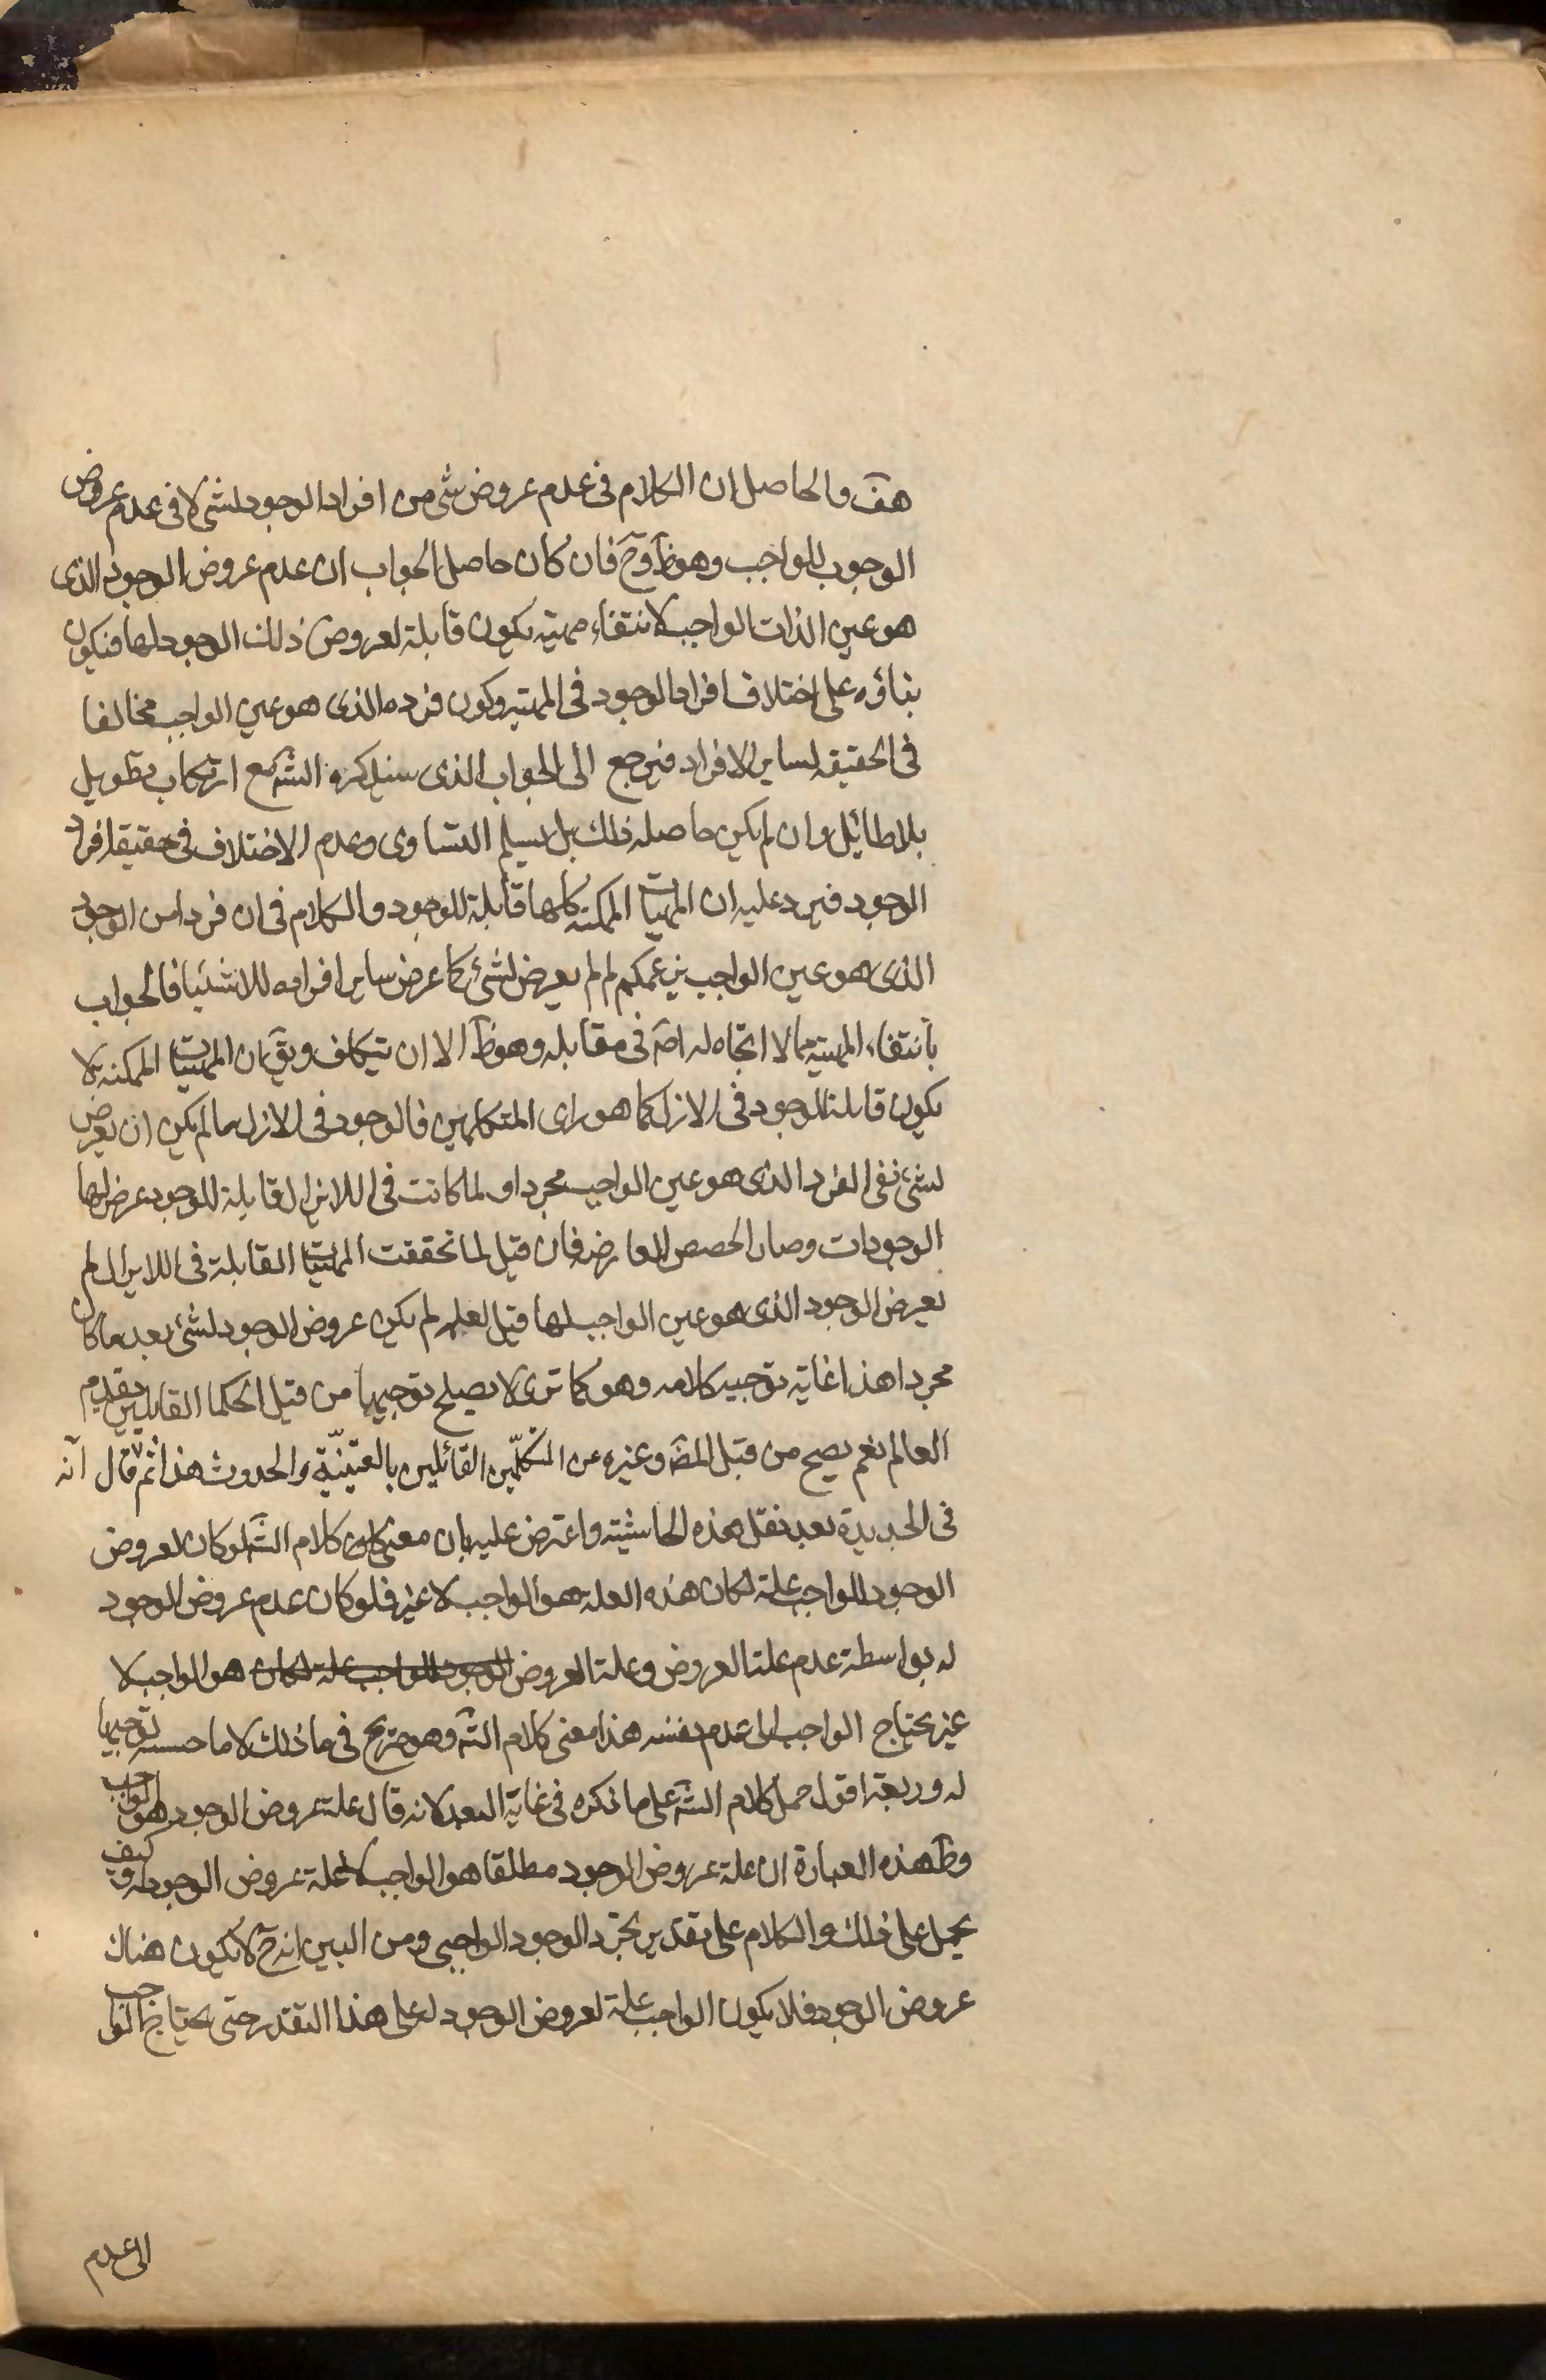 هف والحاصل ان الكلام فى عدم عروض شى من افراد الوجود لشى لا فى عدم عروض
الوجوب للواجب وهو ظ وح فان كان حاصل الجواب ان عدم عروض الوجود الذى
هو عين الذات الواجب لانتفاء مهيته يكون قابلة لعروض ذلك الوجود لها فيكون
بناؤه على اختلاف افراد الوجود فى المهيته وكون فرده الذى هو عين الواجب مخالفا
فى الحقيقه لساير الافراد فيرجع الى الجواب الذى سيذكره الش مع ارتكاب تطويل
بلا طائيل وان لم يكن حاصله ذلك بل يسلم التساوى وعدم الاختلاف فى حقيقة افراد
الوجود فيرد عليه ان المهيات الممكنه كلها قابلة للوجود والكلام فى ان فردا من الوجود
الذى هو عين الواجب بزعمكم لم لم يعرض لشئ كما عرض ساير افراده للاشيا فالجواب
بانتفاء المهيته مما لا اتجاه له اصَ فى مقابله وهو ظ الا ان يتكلف ويق ان المهيات الممكنه لا
يكون قابلة للوجود فى الازل كما هو راى المتكلمين فالوجود فى الازل ما لم يكن ان يعرض
لشئ نفى الفرد الذى هو عين الواجب مجردا ولما كانت فى اللايزال قابلة للوجود عرض لها
الوجودات وصار الحصص العارضه فان قيل لما تحققت المهيات القابلة فى اللايزال لم
يعرض الوجود الذى هو عين الواجب لها قيل لعله لم يكن عروض الوجود لشئ بعد ما كان
مجردا هذا غاية توجيه كلامه وهو كما ترى لا يصلح توجيها من قبل الحكما القايلين بقدم
العالم نعم يصح من قبل المص وغيره من المتكلّمين القائلين بالعينيّة والحدوث هذا ثم قال انه
فى الجديدة بعد نقل هذه الحاشيته واعترض عليه بان معنى كلام الش لو كان لعروض
الوجود للواجب علة لكان هذه العله هو الواجب لا غير فلو كان عدم عروض الوجود
له بواسطة عدم علة العروض وعلة العروض الوجود للواجب علة لكان هو الواجب لا
غير يحتاج الواجب الى عدم نفسه هذا معنى كلام الش وهو صريح فى ما ذلك لا ما حسبه توجيها
له اقول حمل كلام الش على ما ذكره فى غاية البعد لانه قال علة عروض الوجود هو الواجب
وظ هذه العبارة ان علة عروض الوجود مطلقا هو الواجب لا علة عروض الوجود له وكيف
يحمل على ذلك والكلام على تقدير تجرد الوجود الواجبى ومن البين انه ح لا يكون هناك
عروض الوجود فلا يكون الواجب علة لعروض الوجود له على هذا التقدير حتى يحتاج الواجب
الى عدم